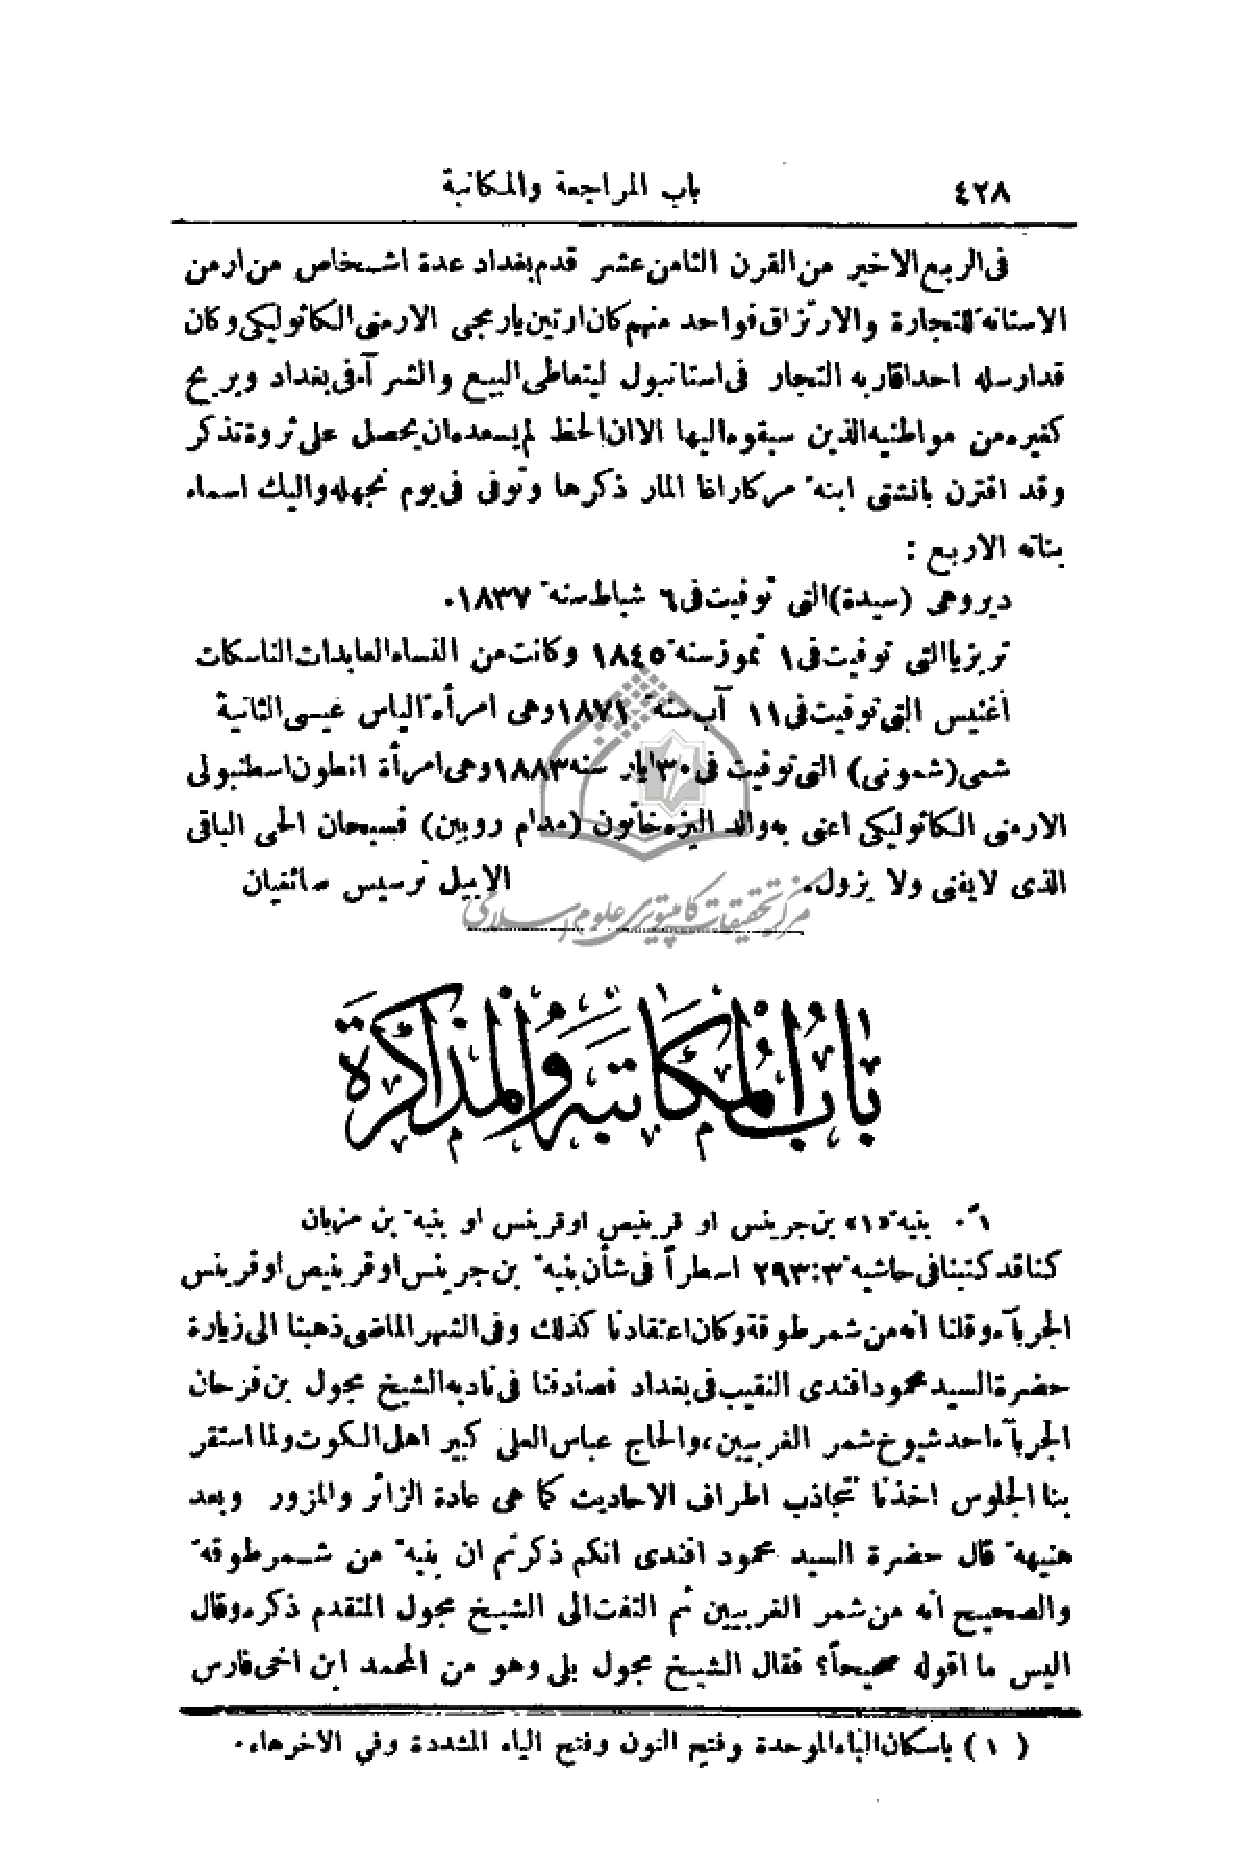 ٤٢٨ باب المراجعة والمكاتبة
فى الربع الاخير من القرن الثامن عشر قدم بغداد عدة اشخاص من ارمن
الاستانة للتجارة والارتزاق فواحد منهم كان ارتين يارمجى الارمنى الكاثوليكى وكان
قد ارسله احد اقاربه التجار فى استانبول ليتعاطى البيع والشرآء فى بغداد ويربح
كغيره من مواطنيه الذين سبقوه اليها الا ان الحظ لم يسعده ان يحصل على ثروة تذكر
وقد اقترن بانتتى ابنة مركارا غا المار ذكرها وتوفى فى يوم نجهله واليك اسماء
بناته الاربع :
ديروهى (سيدة) التى توفيت فى ٦ شباط سنة ١٨٣٧.
تريزيا التى توفيت فى ١ تموز سنة ١٨٤٥ وكانت من النساء العابدات الناسكات
أغنيس التى توفيت فى ١١ آب سنة ١٨٧١ وهى امرأة الياس عيسى الثانية
شمى (شمونى) التى توفيت فى ٣٠ ايار سنه ١٨٨٣ وهى امرأة انطون اسطنبولى
الارمنى الكاثوليكى اعنى به والد اليزه خاتون (مدام روبين) فسبحان الحى الباقى
الذى لا يفنى ولا يزول. الابيل نرسيس صائغيان
مركز تحقيقات كامپيوترى علوم اسلامى
باب المكاتبة والمذاكرة
١ً. بنيه «١» بن جرينس او قرينيص او قرينس او بنية بن مزبان
كنا قد كتبنا فى حاشية ٢٩٣:٣ اسطراً فى شأن بنية بن جرينس او قرينيص او قرينس
الجربآء وقلنا انه من شمر طوقة وكان اعتقادنا كذلك وفى الشهر الماضى ذهبنا الى زيارة
حضرة السيد محمود افندى النقيب فى بغداد فصادفنا فى ناديه الشيخ مجول بن فرحان
الجربآء احد شيوخ شمر الغربيين، والحاج عباس العلى كبير اهل الكوت ولما استقر
بنا الجلوس اخذنا نتجاذب اطراف الاحاديث كما هى عادة الزائر والمزور وبعد
هنيهة قال حضرة السيد محمود افندى انكم ذكرتم ان بنية من شمر طوقة
والصحيح انه من شمر الغربيين ثم التفت الى الشيخ مجول المتقدم ذكره وقال
اليس ما اقوله صحيحاً؟ فقال الشيخ مجول بلى وهو من المحمد ابن اخى فارس
( ١ ) باسكان الباء الموحدة وفتح النون وفتح الياء المشددة وفي الاخر هاء.